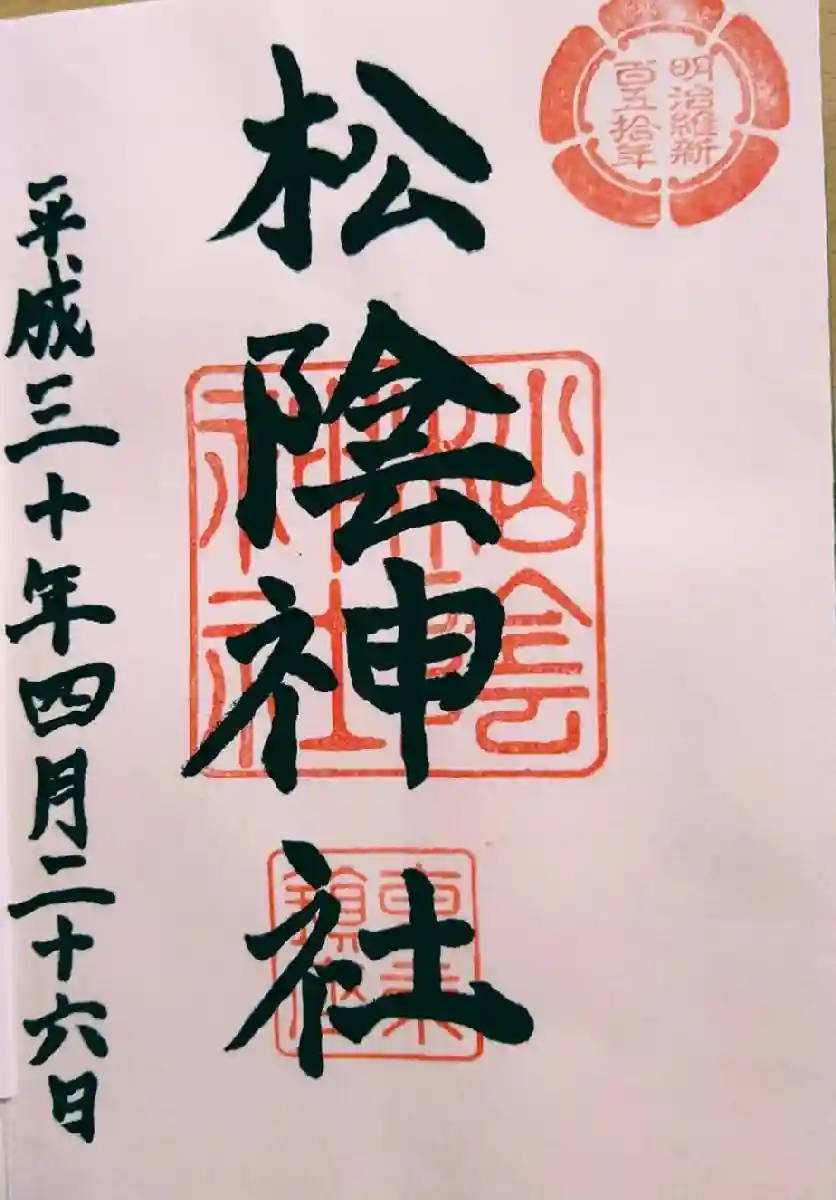 明治維新
百五拾年
松陰神社
松陰
神社
東京
鎮座
平成三十年四月二十六日